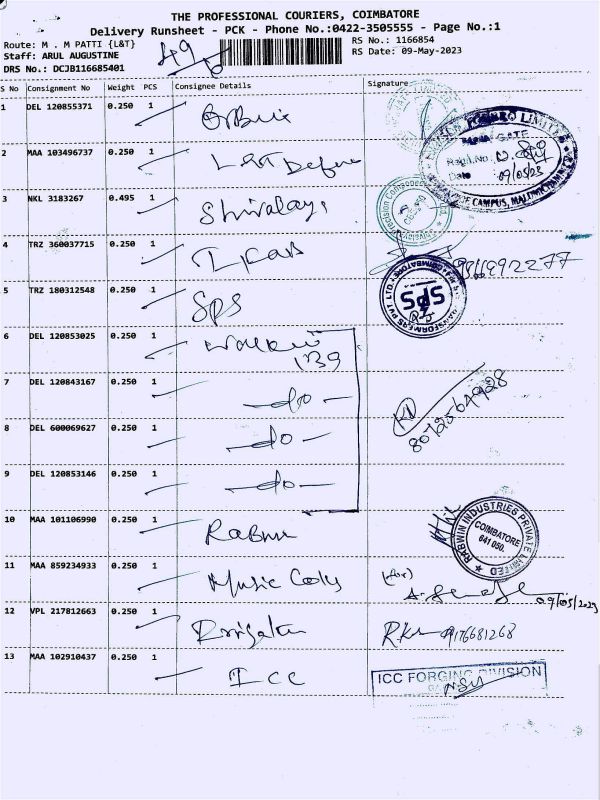 THE PROFESSIONAL COURIERS, COIMBATORE
Delivery Runsheet - PCK - Phone No.:0422-3505555 - Page No.:1
Route: M . M PATTI {L&T}
RS No.: 1166854
Staff: ARUL AUGUSTINE
RS Date: 09-May-2023
DRS No.: DCJB116685401
49
S No Consignment No Weight PCS Consignee Details Signature
1 DEL 120855371 0.250 1
2 MAA 103496737 0.250 1 L&T Defence
MAIN GATE
Regd.No.
Date 09/05/23
CAMPUS,
3 NKL 3183267 0.495 1 Shivalaya
4 TRZ 360037715 0.250 1
5 TRZ 180312548 0.250 1 SPS
SPS
6 DEL 120853025 0.250 1
139
7 DEL 120843167 0.250 1 -do-
8 DEL 600069627 0.250 1 -do-
8072564928
9 DEL 120853146 0.250 1 -do-
10 MAA 101106990 0.250 1 Rabwin
RABWIN INDUSTRIES PRIVATE LIMITED
COIMBATORE
641 050.
11 MAA 859234933 0.250 1 Music
(for)
09/05/2023
12 VPL 217812663 0.250 1
9176681268
13 MAA 102910437 0.250 1 ICC
ICC FORGING DIVISION